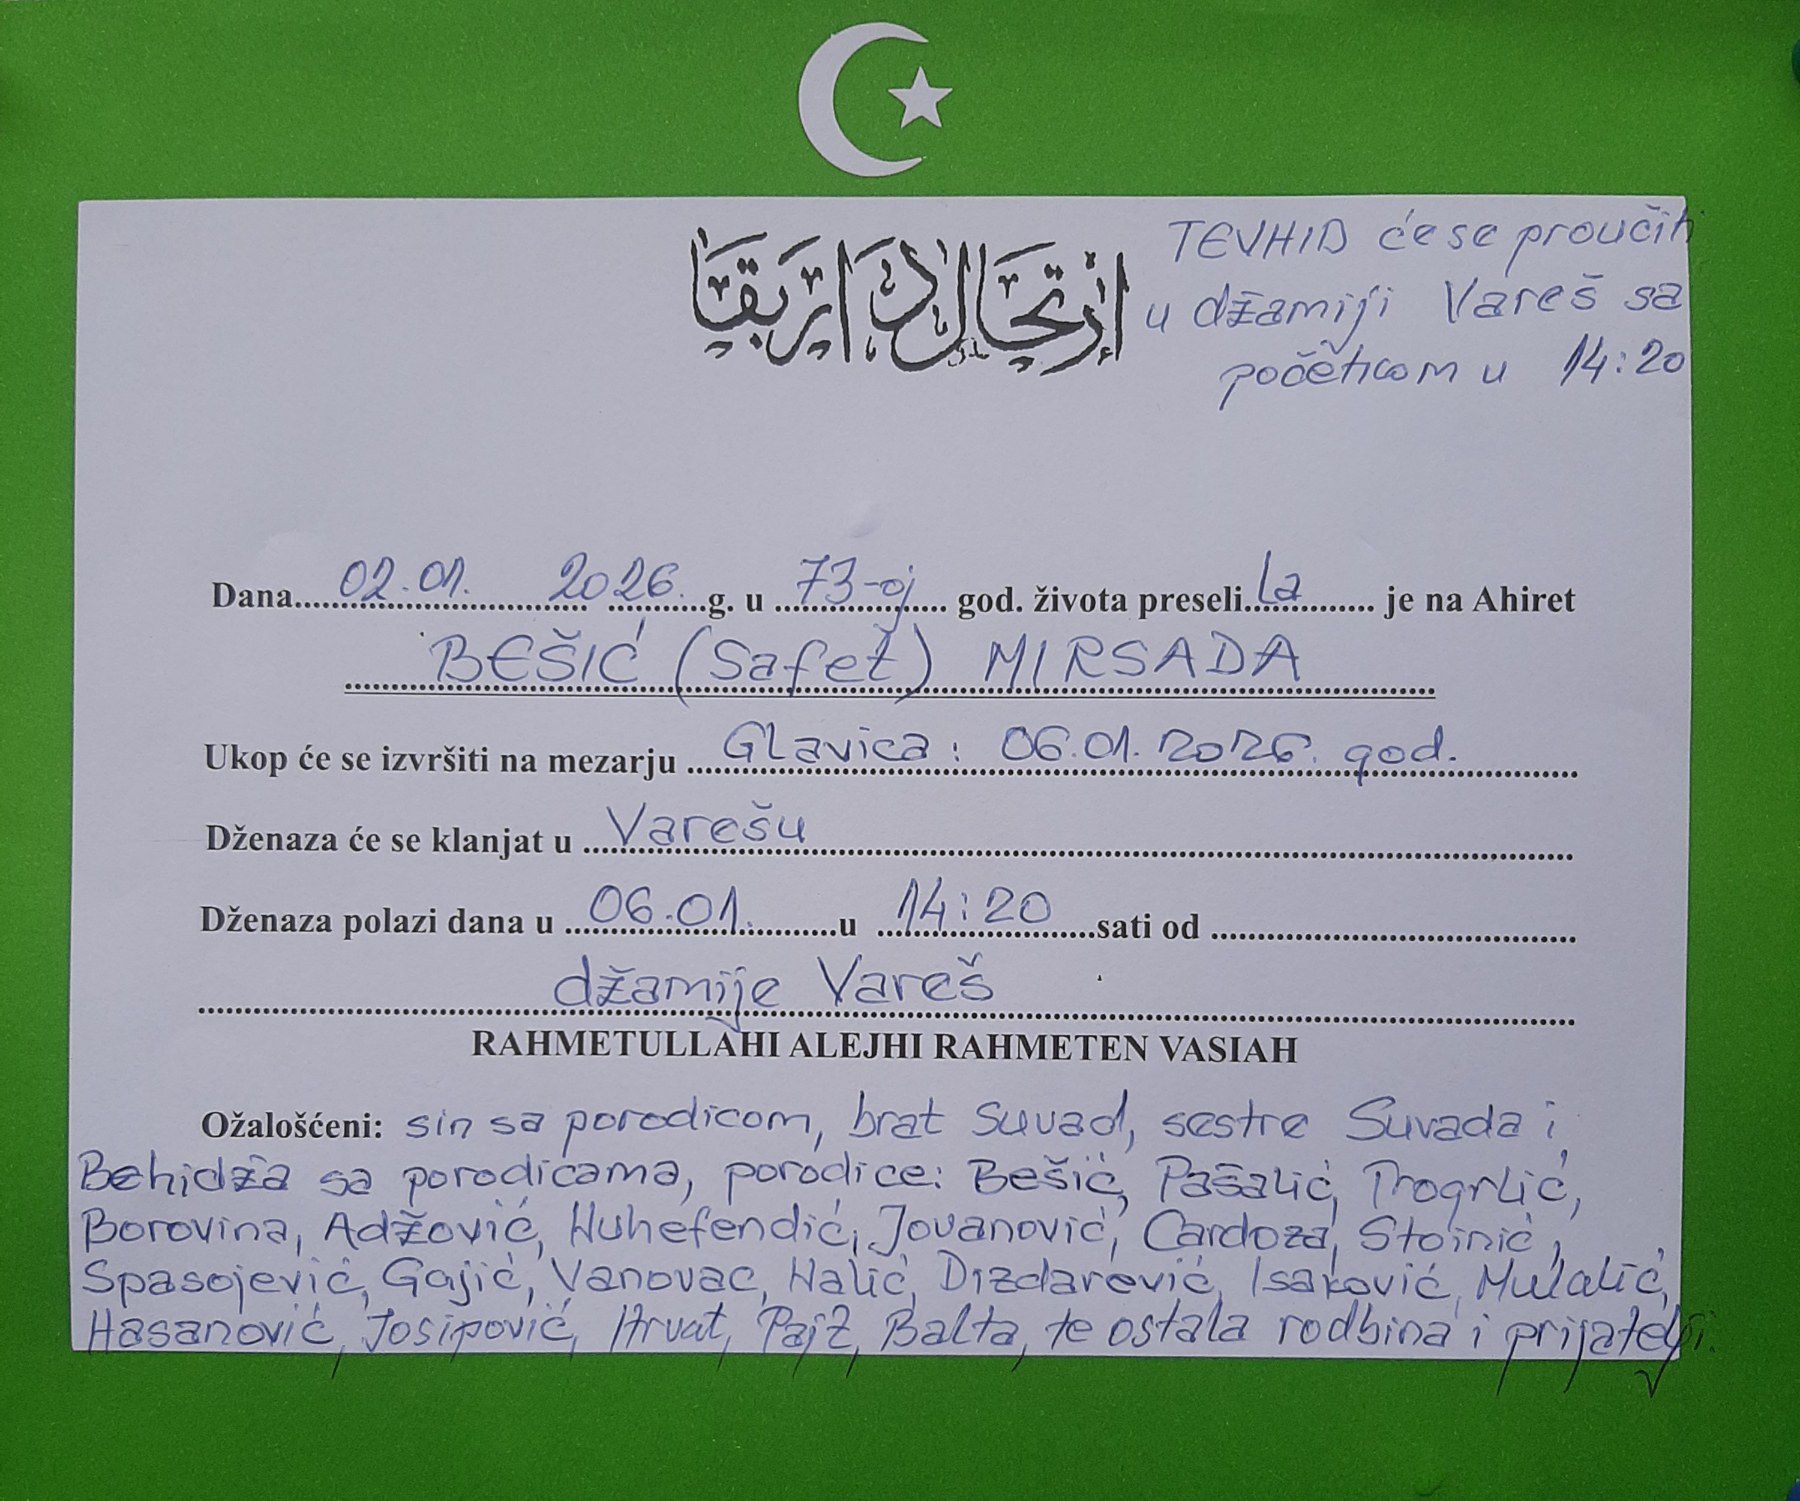 إرتحال دار بقا
TEVHID će se proučiti
u džamiji Vareš sa
početkom u 14:20
Dana 02.01. 2026. g. u 73-oj god. života preselila je na Ahiret
BEŠIĆ (Safet) MIRSADA
Ukop će se izvršiti na mezarju Glavica: 06.01.2026. god.
Dženaza će se klanjat u Varešu
Dženaza polazi dana u 06.01. u 14:20 sati od
džamije Vareš
RAHMETULLAHI ALEJHI RAHMETEN VASIAH
Ožalošćeni: sin sa porodicom, brat Suvad, sestre Suvada i
Behidža sa porodicama, porodice: Bešić, Pašalić, Progrlić,
Borovina, Adžović, Huhefendić, Jovanović, Cardoza, Stoinić,
Spasojević, Gajić, Vanovac, Halić, Dizdarević, Isaković, Mulalić,
Hasanović, Josipović, Hrvat, Pajz, Balta, te ostala rodbina i prijatelji.